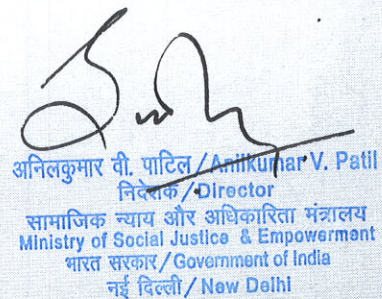 अनिलकुमार वी. पाटिल/Anilkumar V. Patil
निदेशक/Director
सामाजिक न्याय और अधिकारिता मंत्रालय
Ministry of Social Justice & Empowerment
भारत सरकार/Government of India
नई दिल्ली/New Delhi